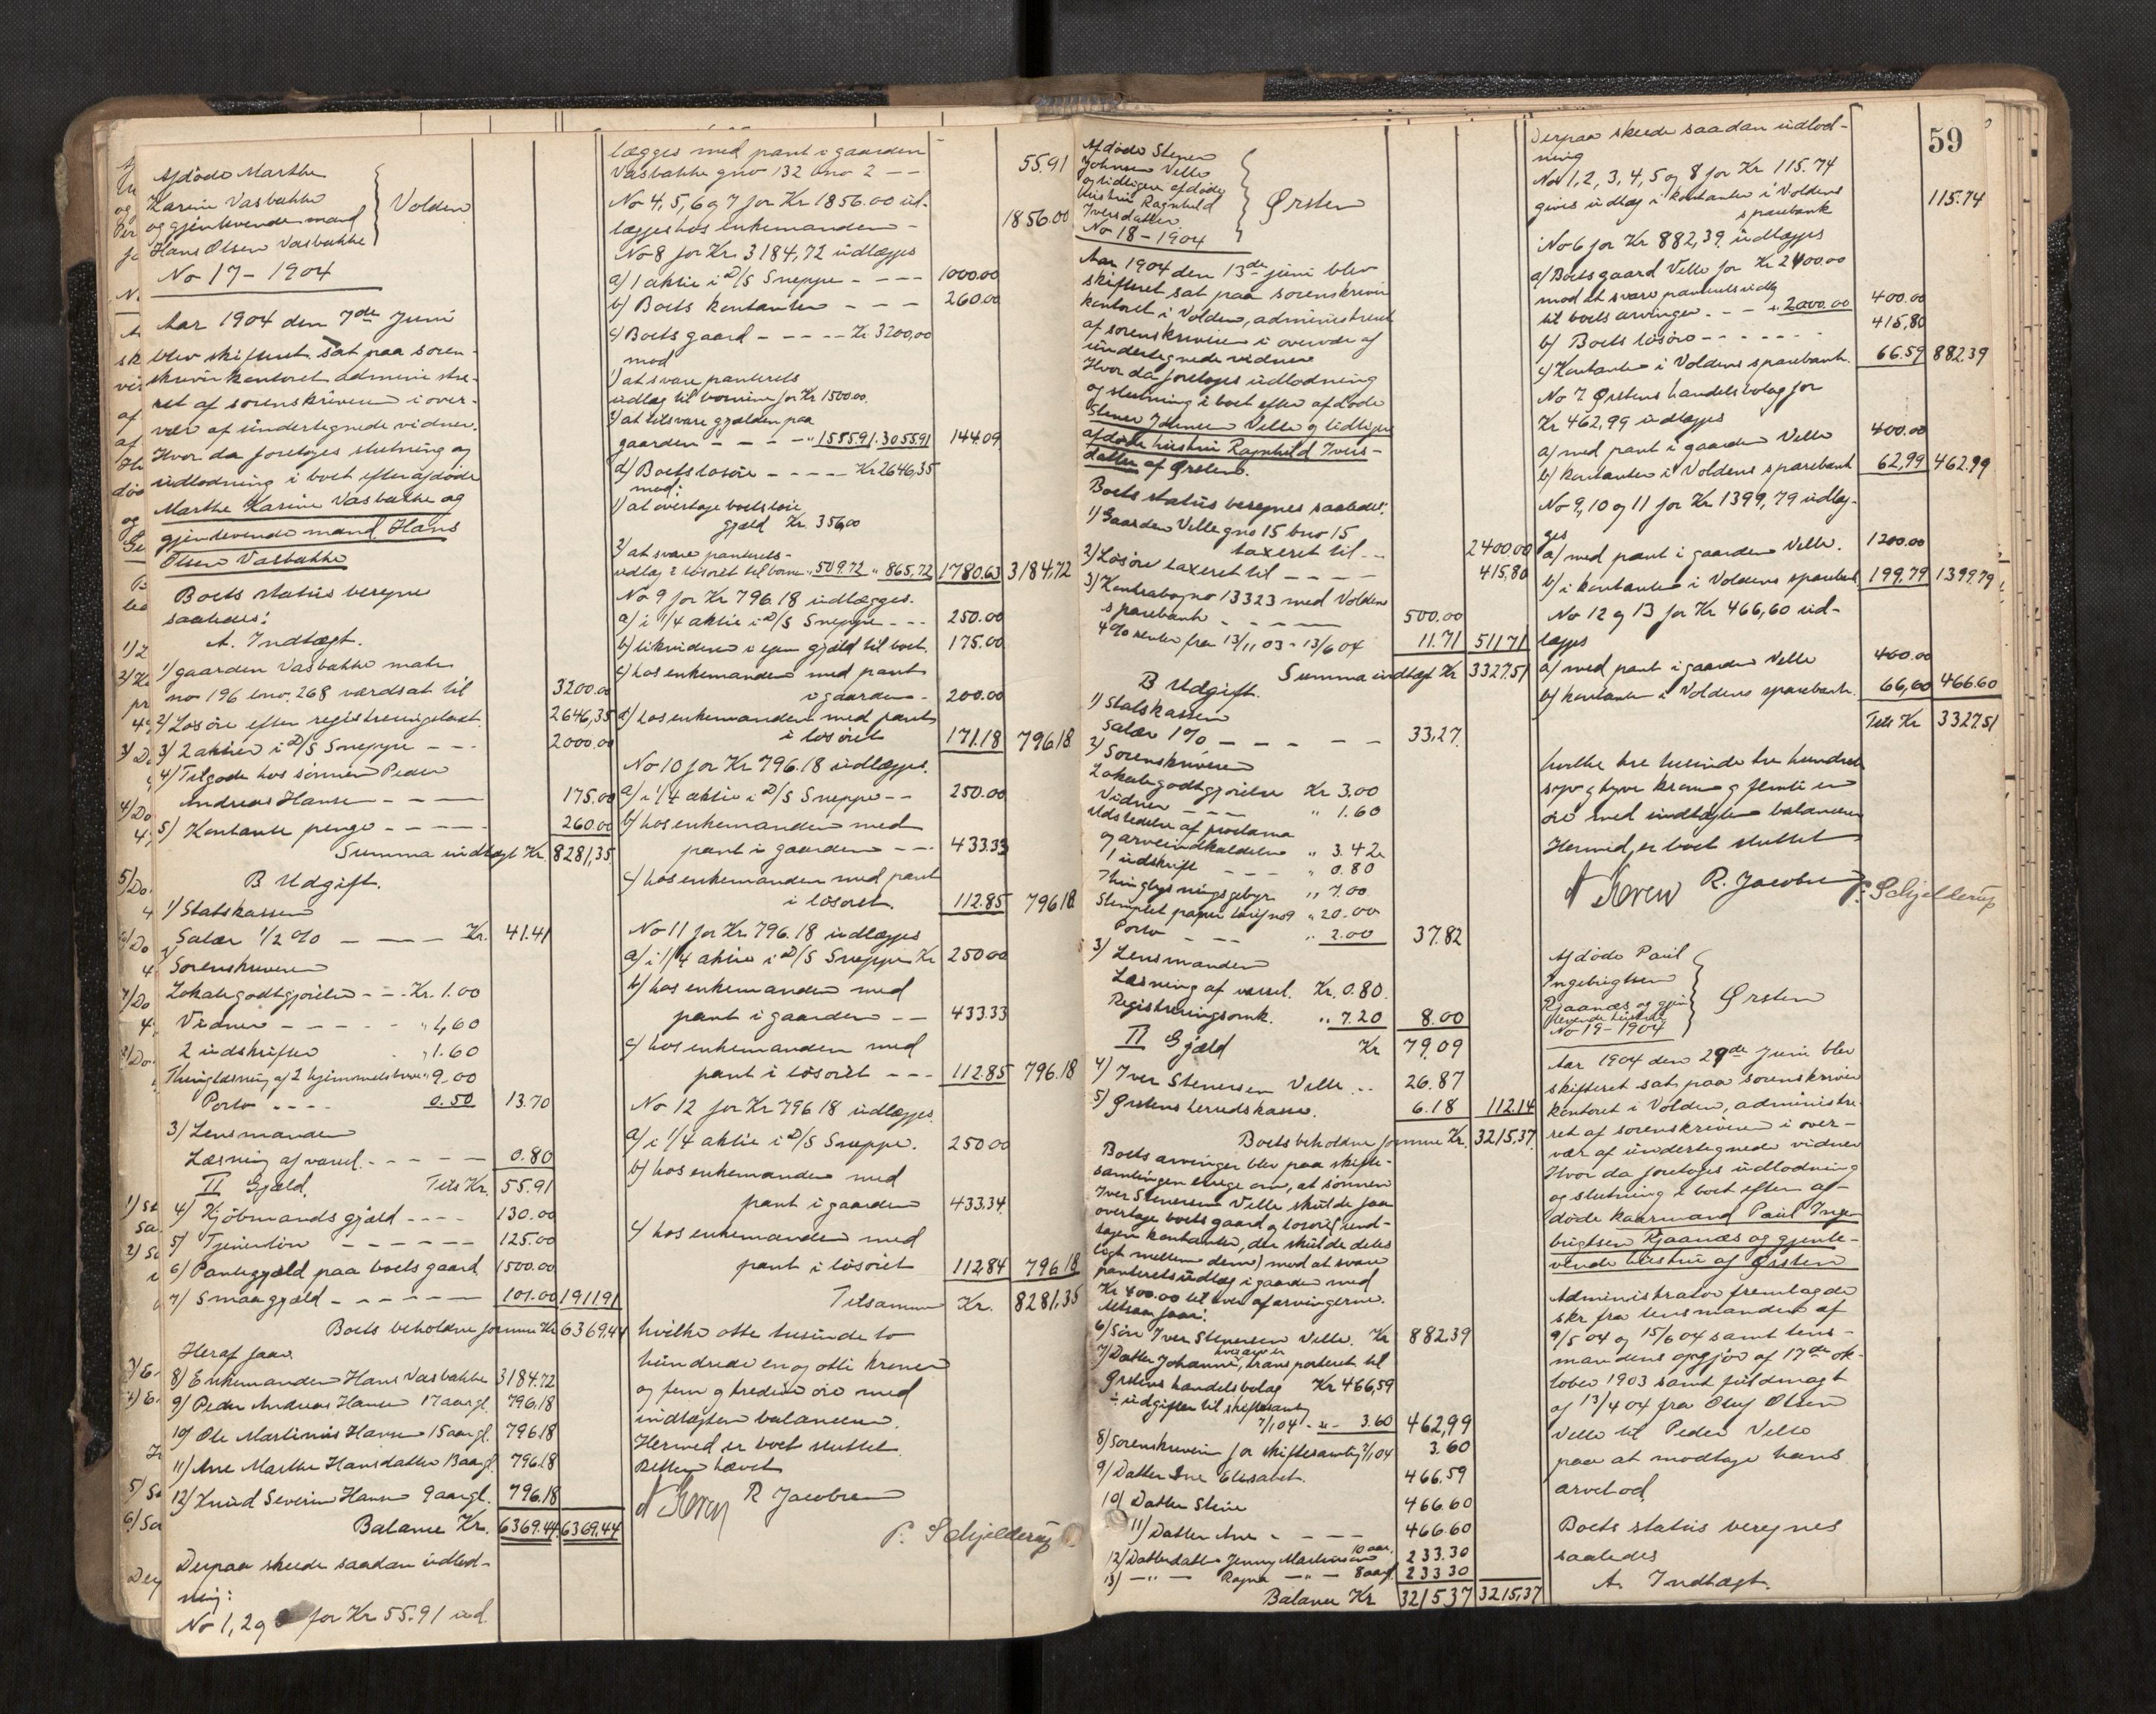 Afdøde Marthe
Karine Vasbakke
og gjenlevende mand
Hans Olsen Vasbakke
Volden
No 17 - 1904
Aar 1904 den 7de Juni
blev skifteret sat paa soren-
skriverkontoret administre-
ret af sorenskriveren i over-
vær af undertegnede vidner.
Hvor da foretoges slutning og
udlodning i boet efter afdøde
Marthe Karine Vasbakke og
gjenlevende mand Hans
Olsen Vasbakke
Boets status beregnes
saaledes:
A. Indtægt.
1) gaarden Vasbakke matr
no 196 lno. 268 værdsat til 3200.00
2) Løsøre efter registreringsforr. 2646,35
3) 2 aktier i D/S Sneppe - - - 2000.00
4) Tilgode hos sønnen Peder
Andreas Hansen - - - - 175.00
5) Kontante penge - - - - - 260.00
Summa indtægt Kr. 8281,35
B. Udgift.
1) Statskassen
Salær 1/2 % - - - Kr. 41.41
2) Sorenskriveren
Lokalegodtgjørelse - - - Kr. 1.00
Vidner - - - - - " 1,60
2 udskrifter " 1.60
Thinglæsning af 2 hjemmelsbreve " 9.00
Porto - - - - 0.50 13.70
3) Lensmanden
Læsning af varsel - - - - - 0.80
II Gjæld. Tils Kr. 55.91
4) Kjøbmandsgjæld - - - - 130.00
5) Tjenerløn - - - - - - 125.00
6) Pantegjæld paa boets gaard 1500.00
7) Smaagjæld - - - - - - 101.00 1911.91
Boets beholdne formue Kr 6369.44
Heraf faar
8) Enkemanden Hans Vasbakke 3184.72
9) Peder Andreas Hansen 17 aar gl. 796.18
10) Ole Martinus Hansen 15 aar gl. 796.18
11) Ane Marthe Hansdatter 13 aar gl. 796.18
12) Knud Severin Hansen 9 aar gl. 796.18
Balance Kr. 6369.44 6369.44
Derpaa skeede saadan udlod-
ning:
No 1, 2 og 3 for Kr 55.91 ud
lægges med pant i gaarden
Vasbakke gno 132 bno 2 - - 55.91
No 4, 5, 6 og 7 for Kr 1856.00 ud-
lægges hos enkemanden - 1856.00
No 8 for Kr. 3184,72 udlægges
a) 1 aktie i D/S Sneppe - - - 1000.00
b) Boets kontanter - - - 260.00
c) Boets gaard - - - - Kr 3200,00
mod
1) at svare panterets
udlæg til børnene for Kr 1500.00
2) at tilsvare gjælden paa
gaarden - - - - " 1555.91 . 3055.91 144.09
d) Boets løsøre - - - - Kr 2646,35
mod:
1) at overtage boets løse
gjæld Kr. 356.00
2) at svare panterets-
udlæg i løsøret til børnene " 509.72 " 865,72 1780.63 3184,72
No 9 for Kr 796.18 udlægges.
a) i 1/4 aktie i D/S Sneppe - - - 250.00
b) likviderer i egen gjæld til boet. 175.00
c) hos enkemanden med pant
i gaarden - 200.00
d) hos enkemanden med pant
i løsøret 171.18 796.18
No 10 for Kr 796.18 udlægges.
a) i 1/4 aktie i D/S Sneppe - - 250.00
b) hos enkemanden med
pant i gaarden - - - 433.33
c) hos enkemanden med pant
i løsøret. 112.85 796.18
No 11 for Kr. 796.18 udlægges
a) i 1/4 aktie i D/S Sneppe Kr 250.00
b) hos enkemanden med
pant i gaarden - - 433.33
c) hos enkemanden med
pant i løsøret - - - 112.85 796.18
No 12 for Kr 796 18 udlægges.
a) i 1/4 aktie i D/S Sneppe. 250.00
b) hos enkemanden med
pant i gaarden 433.34
c) hos enkemanden med
pant i løsøret 112.84 796.18
Tilsammen Kr. 8281,35
hvilke otte tusinde to
hundrede en og otti kroner
og fem og tredive øre med
indtægten balancerer.
Hermed er boet sluttet
Retten hævet
R Jacobsen
P. Schjelderup
59
Afdøde Stener
Johnsen Velle
og tidligere afdøde
hustru Ragnhild
Iversdatter
Ørsten
No 18 - 1904
Aar 1904 den 13de juni blev
skifteret sat paa sorenskriver
kontoret i Volden, administreret
af sorenskriveren i overvær af
undertegnede vidner
Hvor da foretoges udlodning
og slutning i boet efter afdøde
Stener Johnsen Velle og tidligere
afdøde hustru Ragnhild Ivers-
datter af Ørsten.
Boets status beregnes saaledes:
1) Gaarden Velle gno 15 bno 15
taxeret til - - 2400.00
2) Løsøre taxeret til - - - - 415,80
3) Kontrabog no 13323 med Voldens
sparebank - - - - - 500.00
4 % renter fra 13/11 03 - 13/6 04 11.71 511 71
Summa indtægt Kr 3327.51
B Udgift.
1) Statskassen
Salær 1 % - - - - - 33,27
2) Sorenskriveren
Lokalegodtgjørelse Kr 3.00
Vidner - - - " 1.60
Udstedelse af proclama
og arveindkaldelse " 3.42
1 udskrift - - - " 0.80
Thinglysningsgebyr " 7.00
Stemplet papir tarif no 9 " 20.00
Porto - - - " 2.00 37.82
3) Lensmanden
Læsning af varsel. Kr. 0.80.
Registreringsomk. " 7.20 8.00
II Gjæld Kr 79,09
4) Iver Stenersen Velle - - 26.87
5) Ørstens herredskasse. 6.18 112.14
Boets beholdne formue Kr. 3215,37
Boets arvinger blev paa skifte-
samlingen enige om, at sønnen
Iver Stenersen Velle skulde faa
overtage boets gaard og løsøre (und-
tagen kontanter, der skulde deles
ligt mellem dem) mod at svare
panteretsudlæg i gaarden med
Kr 400.00 til hver af arvingerne.
Altsaa faar:
6) Søn Iver Stenersen Velle. Kr 882,39
7) Datter Johanne, hvis arv er transporteret til
Ørstens handelsbolag Kr 466,59
÷ udgifter til skiftesamling
7/1 04 - " - 3.60 462,99
8) Sorenskriveren for skiftesamling 7/1 04 3.60
9) Datter Ine Elisabet. 466.59
10) Datter Stine 466.60
11) Datter Ane - - - - - 466.60
12) Datterdatter Jenny Martinsen 10 aar. 233.30
13) - " - Ragna - " - 8 aar gl. 233 30
Balance Kr 3215 37 3215,37
Derpaa skeede saadan udlod-
ning
No 1, 2, 3, 4, 5 og 8 for Kr 115.74
gives udlæg i kontanter i Voldens
sparebank 115.74
No 6 for Kr 882,39 udlægges
a) Boets gaard Velle for Kr 2400.00
mod at svare panteretsudlæg
til boets arvinger - - - " 2000.00 400.00
b) Boets løsøre - - - - - - 415,80
c) Kontanter i Voldens sparebank. 66.59 882.39
No 7 Ørstens handelsbolag for
Kr 462,99 udlægges
a) med pant i gaarden Velle 400.00
b) kontanter i Voldens sparebank 62,99 462.99
No 9, 10 og 11 for Kr 1399,79 udlæg-
ges
a) med pant i gaarden Velle. 1200.00
b) i kontanter i Voldens sparebank 199,79 1399,79
No 12 og 13 for Kr 466,60 ud-
lægges
a) med pant i gaarden Velle 400.00
b) kontanter i Voldens sparebank. 66,60 466.60
Tils Kr 3327.51
hvilke tre tusinde tre hundrede
syv og tyve kroner og femti en
øre med indtægten balancerer
Hermed er boet sluttet
R. Jacobsen
P. Schjelderup
Afdøde Paul
Ingebrigtsen
Rjaanæs og gjen
levende hustru
Ørsten
No 19 - 1904
Aar 1904 den 29de Juni blev
skifteret sat paa sorenskriver
kontoret i Volden, administre-
ret af sorenskriveren i over-
vær af undertegnede vidner
Hvor da foretoges udlodning
og slutning i boet efter af-
døde kaarmand Paul Inge-
brigtsen Rjaanæs og gjenle-
vende hustru af Ørsten
Administrator fremlagde
skr fra lensmanden af
9/5 04 og 15/6 04 samt lens-
mandens opgjør af 17de ok-
tober 1903 samt fuldmagt
af 13/4 04 fra Oluf Olsen
Velle til Peder Velle
paa at modtage hans
arvelod.
Boets status beregnes
saaledes
A. Indtægt.